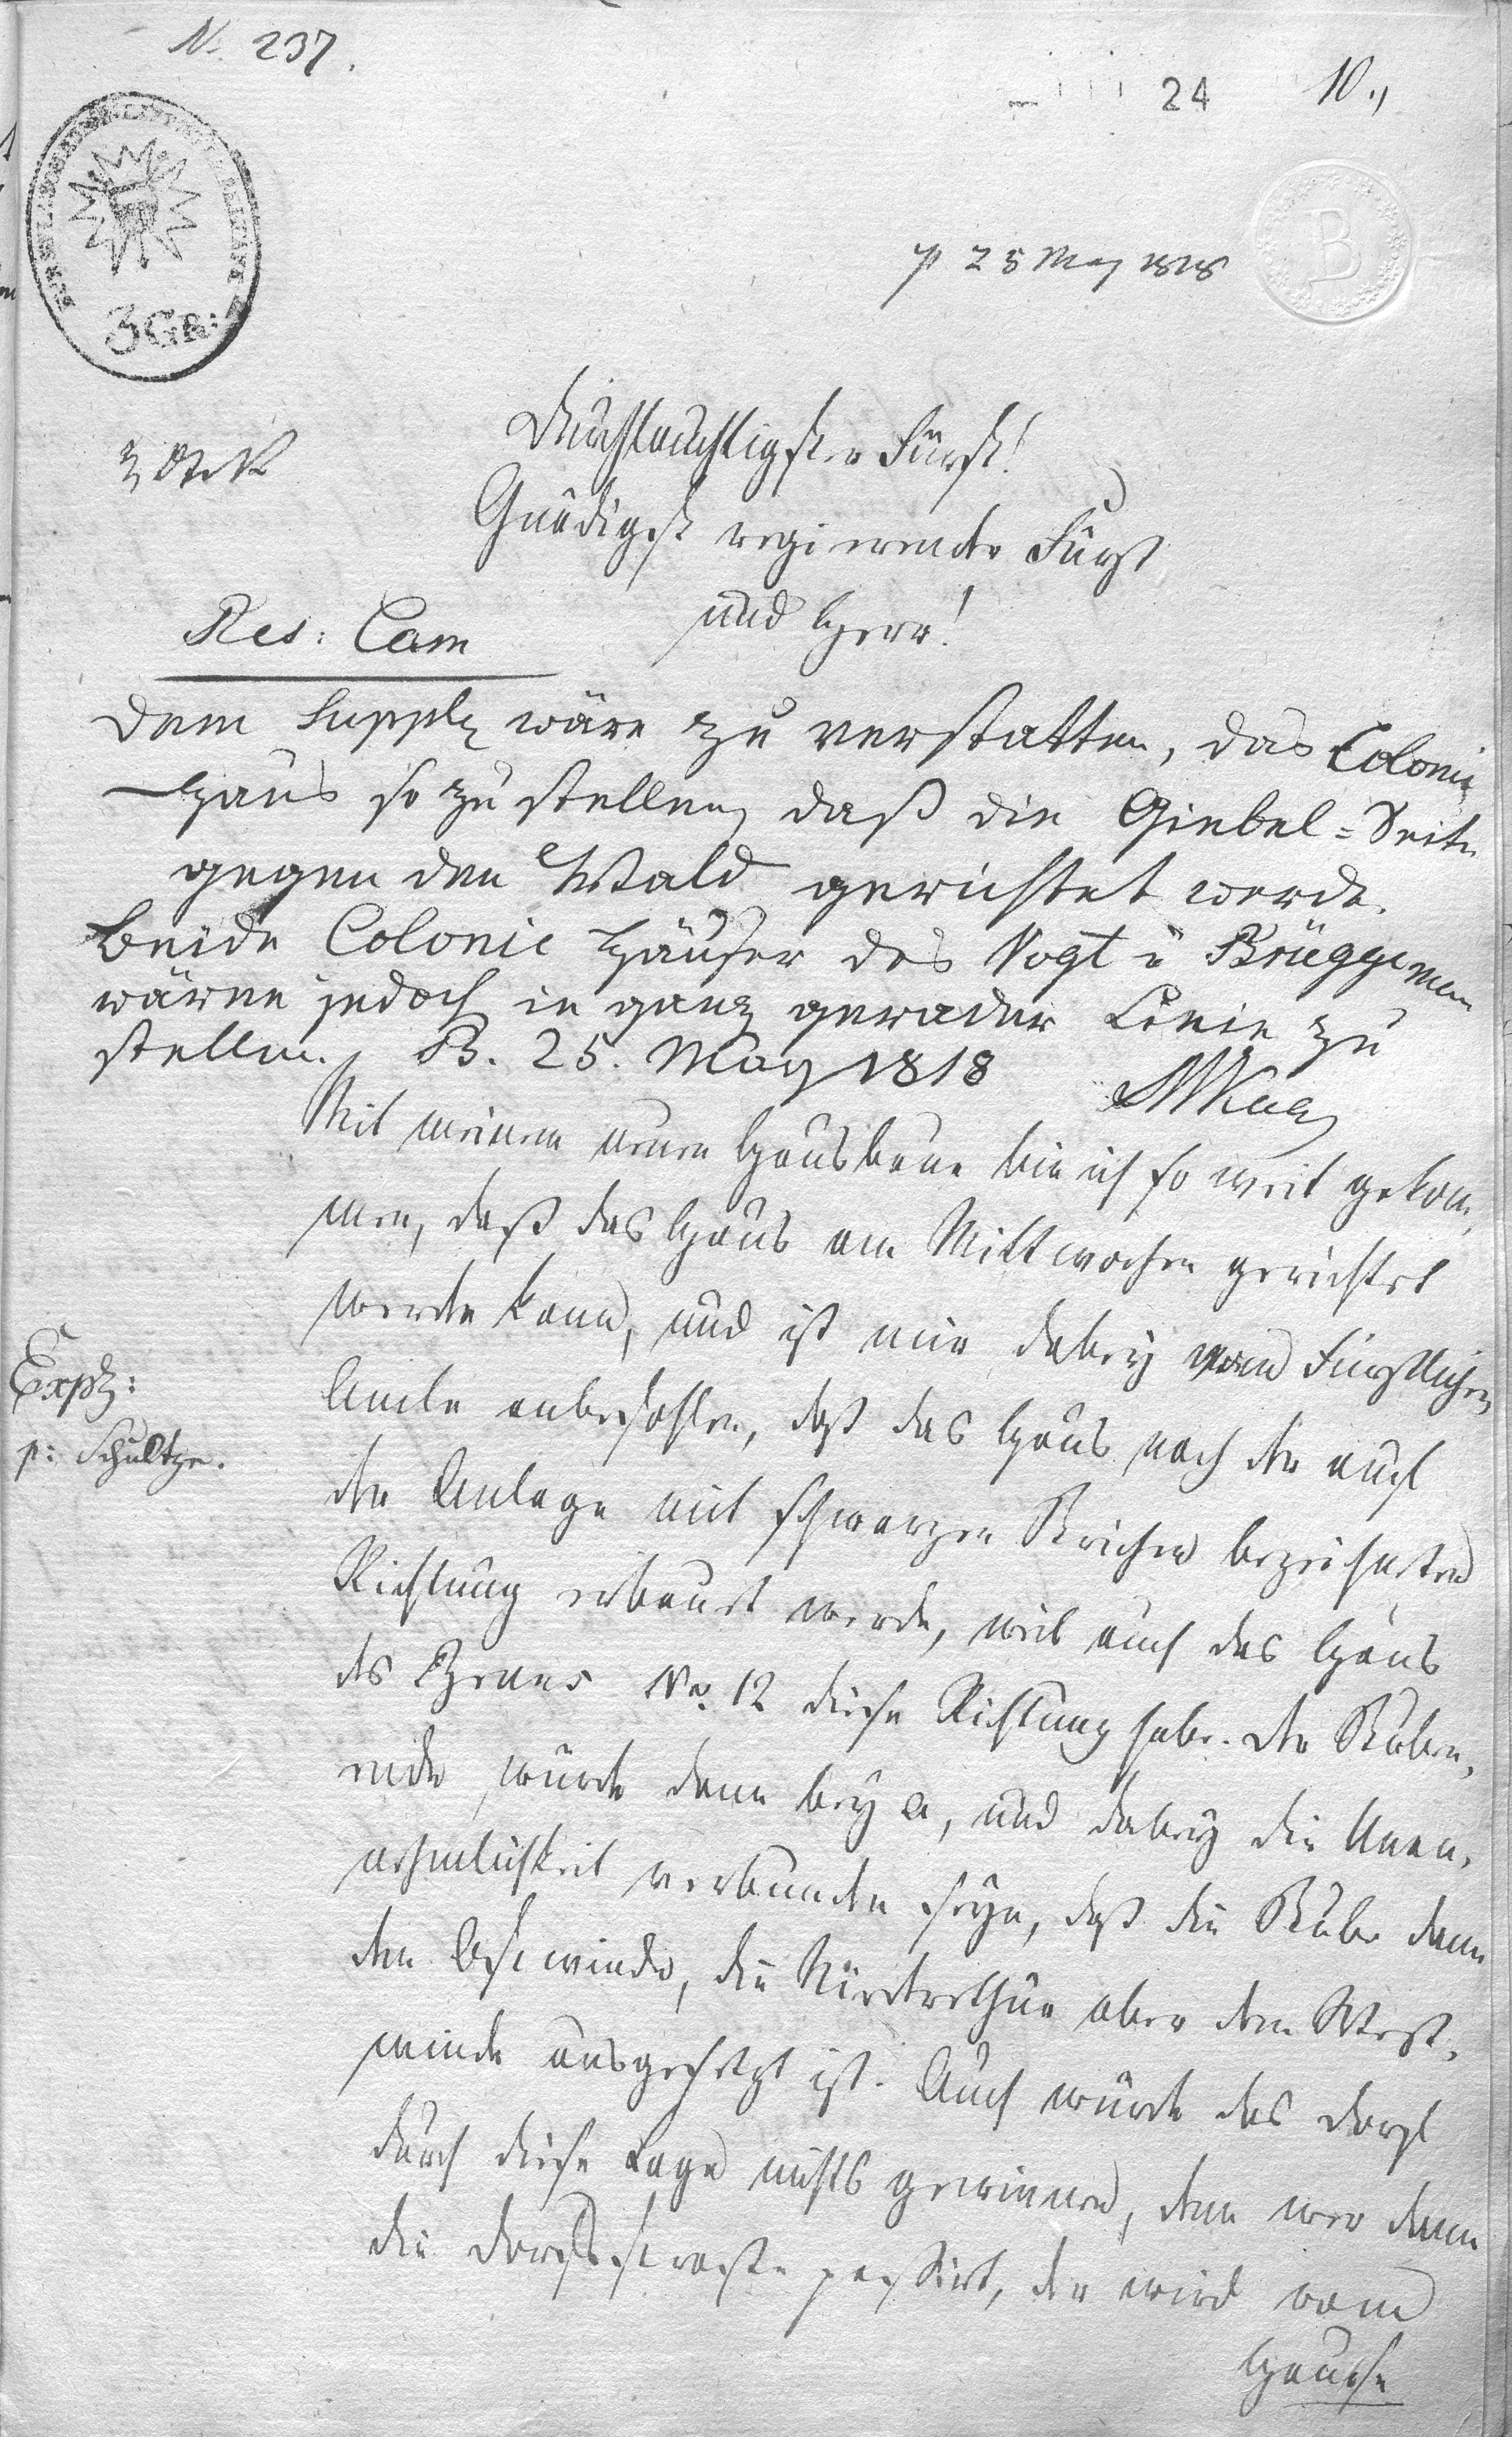 N. 237.
24
10.,
B
3 GR:
25 May 1818
Durchlauchtigster Fürst!
Gnädigst regierender Fürst
und Herr!
Res: Cam
Dem Suppl wäre zu verstatten, das Colonie
Haus so zu stellen, daß die Giebel-Seite
gegen den Wald gerichtet werde.
Beide Colonie Häuser des Vogt u Brüggemann
wären jedoch in ganz gerader Linie zu
stellen. B. 25. May 1818
Mit meinem neuen Hausbaue bin ich so weit gekom,
men, daß das Haus am Mittwochen gerichtet
werden kann, und ist mir dabey vom Fürstlichen
Amte anbefohlen, daß das Haus nach der auf
der Anlage mit schwarzen Strichen bezeichneten
Richtung erbauet werde, weil auch das Haus
des No. 12 diese Richtung habe. Der Stuben,
ende würde dann bey a, und dabey die Unan,
nehmlichkeit verbunden seyn, daß die Stube dem
den Ostwinde, die Niederthür aber dem West,
winde ausgesetzt ist. Auch würde das Dorf
durch diese Lage nichts gewinnen, denn wer dann
die Dorfstraße passirt, der wird vom
Hause
Exp:
p: Schultze.